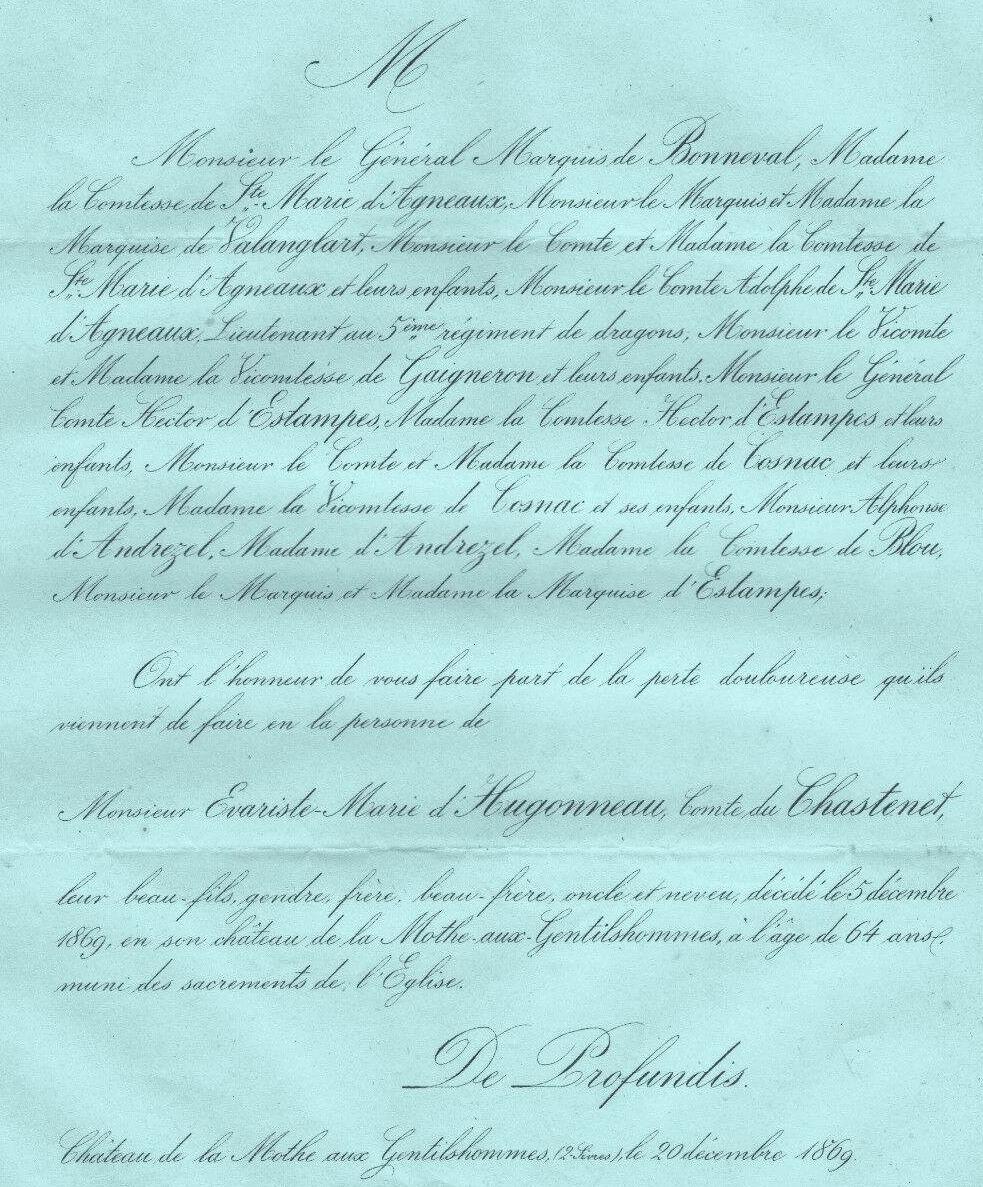 M
Monsieur le Général Marquis de Bonneval, Madame
la Comtesse de Ste. Marie d'Agneaux, Monsieur le Marquis et Madame la
Marquise de Valanglart, Monsieur le Comte et Madame la Comtesse de
Ste. Marie d'Agneaux et leurs enfants, Monsieur le Comte Adolphe de Ste. Marie
d'Agneaux, Lieutenant au 5ème régiment de dragons, Monsieur le Vicomte
et Madame la Vicomtesse de Gaigneron et leurs enfants, Monsieur le Général
Comte Hector d'Estampes, Madame la Comtesse Hector d'Estampes et leurs
enfants, Monsieur le Comte et Madame la Comtesse de Cosnac et leurs
enfants, Madame la Vicomtesse de Cosnac et ses enfants, Monsieur Alphonse
d'Andrezel, Madame d'Andrezel, Madame la Comtesse de Blou,
Monsieur le Marquis et Madame la Marquise d'Estampes;
Ont l'honneur de vous faire part de la perte douloureuse qu'ils
viennent de faire en la personne de
Monsieur Evariste-Marie d'Hugonneau, Comte du Chastenet,
leur beau-fils, gendre, frère, beau-frère, oncle et neveu, décédé le 5 décembre
1869, en son château de la Mothe-aux-Gentilshommes, à l'âge de 64 ans,
muni des sacrements de l'Eglise.
De Profundis.
Château de la Mothe aux Gentilshommes, (2-Sèvres), le 20 décembre 1869.